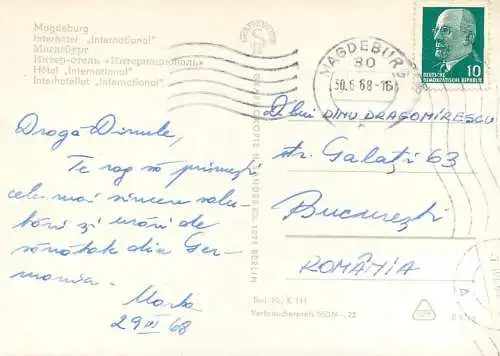 Magdeburg
Interhotel „International"
Магдебург
Интер-отель «Интернациональ»
Hôtel „International"
Interhotellet „International"
MAGDEBURG
30
30.6.68-16
10
DEUTSCHE
DEMOKRATISCHE REPUBLIK
Dragă Dinule,
Te rog să primești
cele mai sincere salu-
tări și urări de
sănătate din Ger-
mania.
29 VI 68
DINU DRAGOMIRESCU
str. Galați 63
București
ROMÂNIA
1071 BERLIN
Best. Nr. K 111
Verbraucherpreis MDN -,25